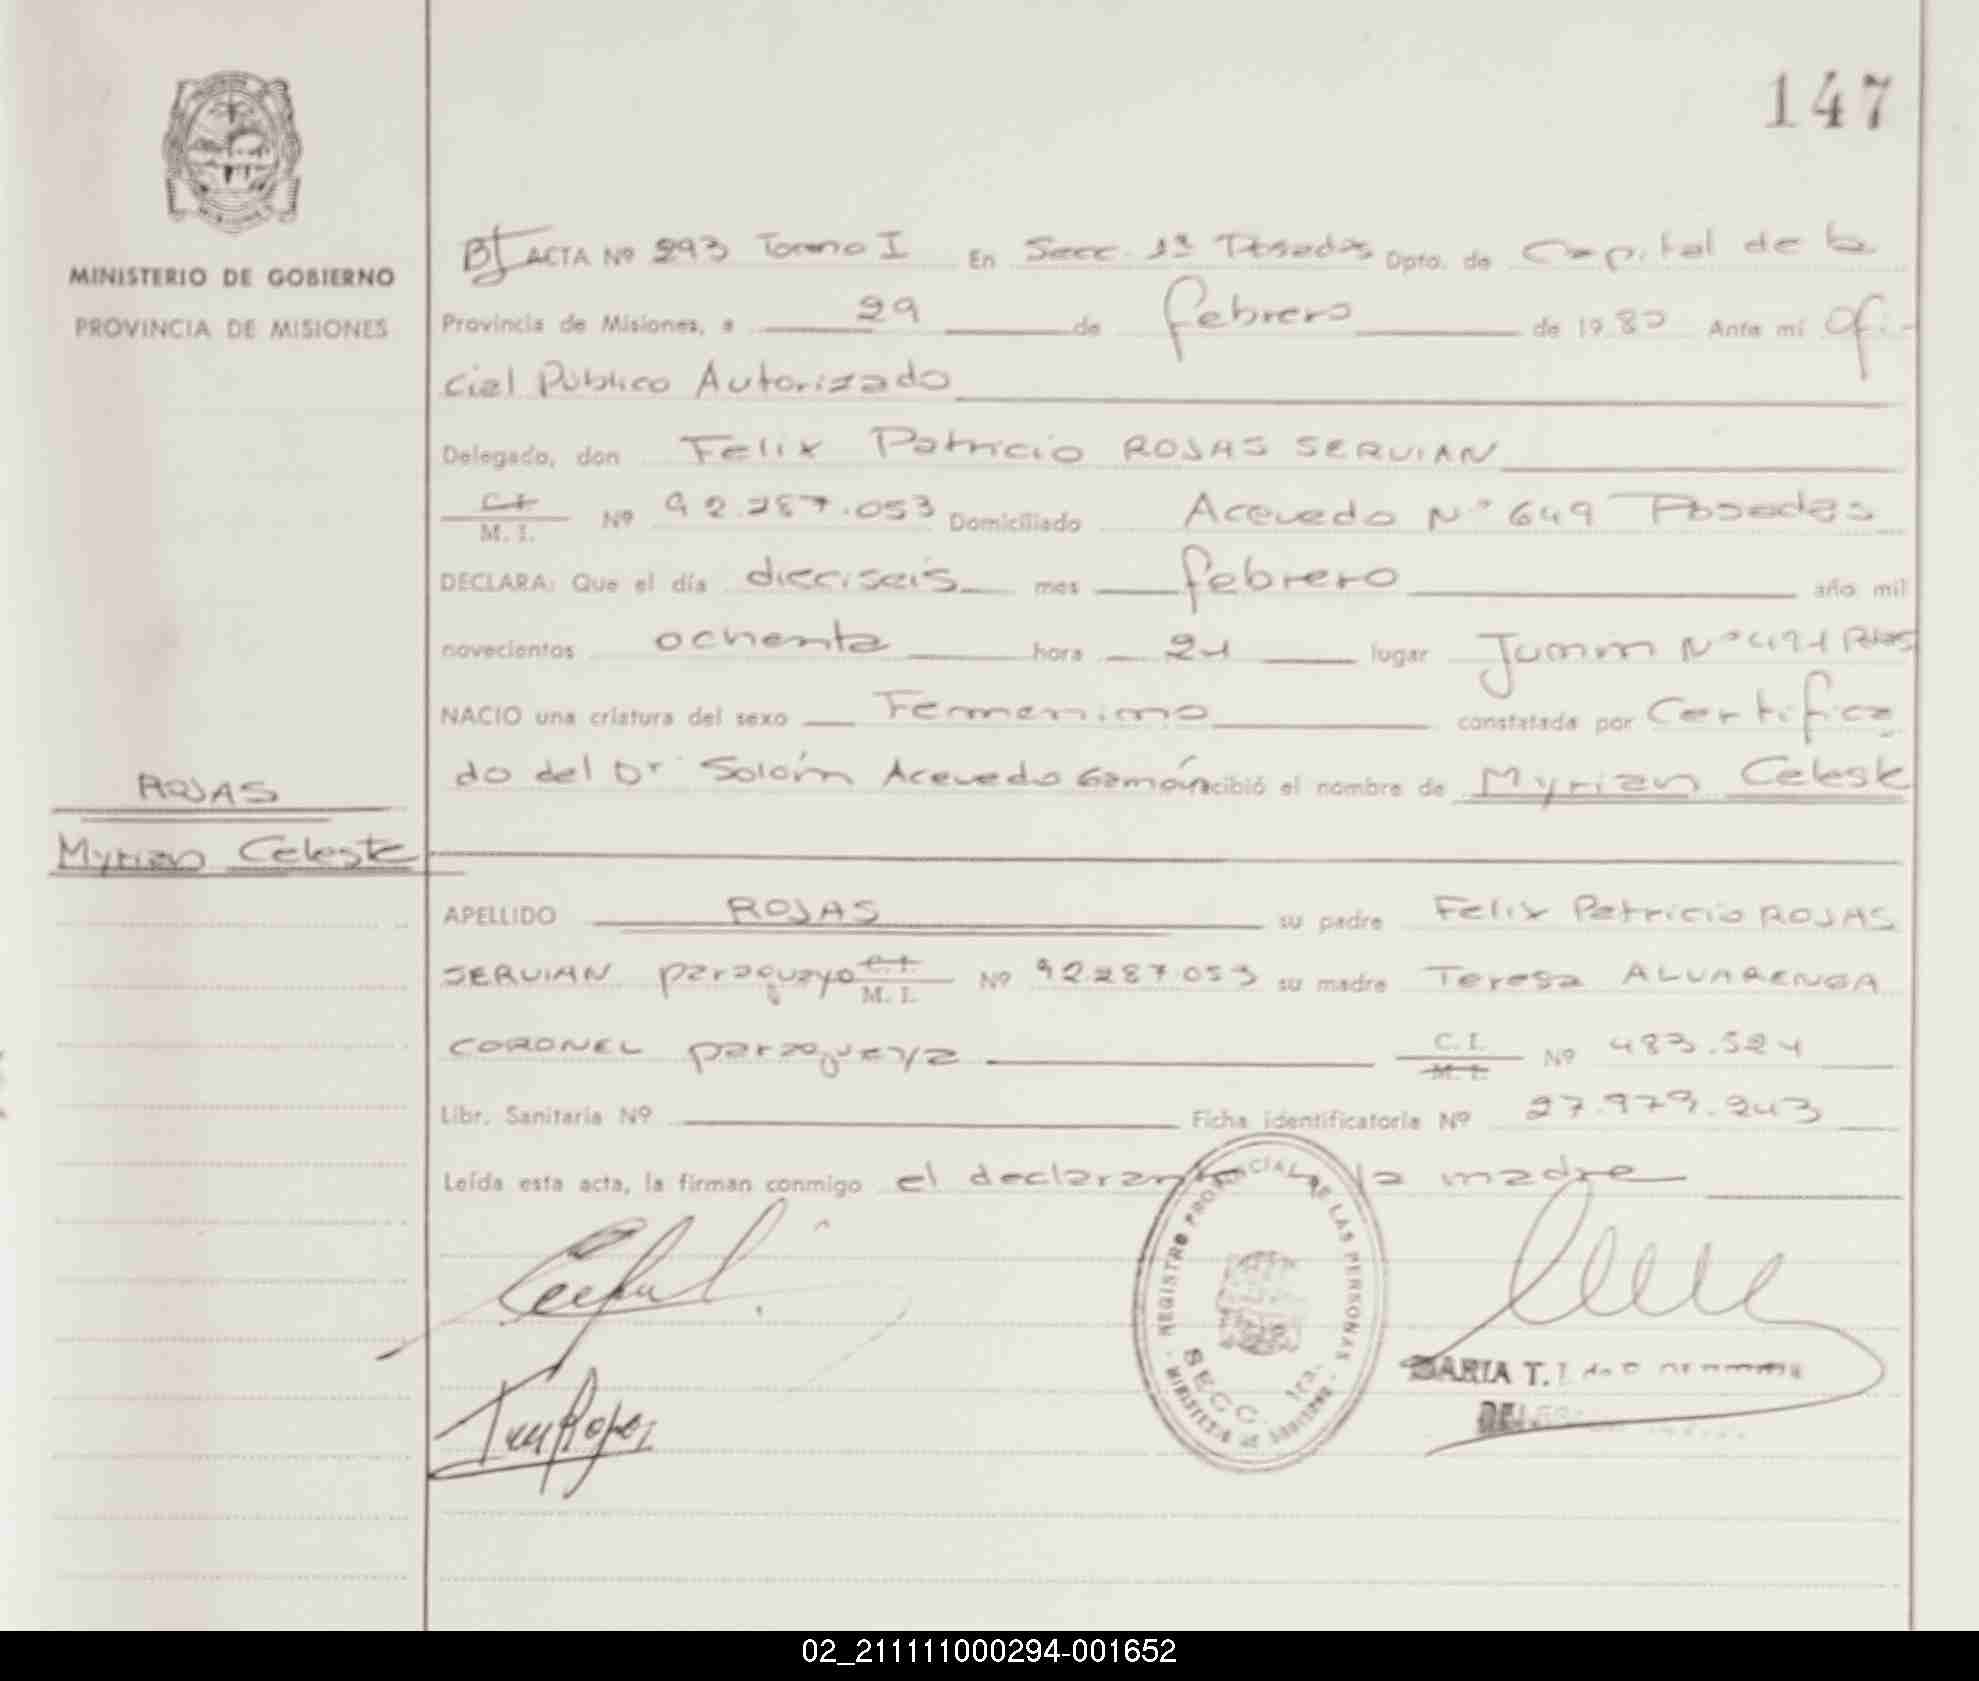 147
MINISTERIO DE GOBIERNO
PROVINCIA DE MISIONES
ACTA Nº 293 Tomo I En Secc. 1ª Posadas Dpto. de Capital de la
Provincia de Misiones, a 29 de febrero de 1980 Ante mí Ofi-
cial Público Autorizado
Delegado, don Felix Patricio ROJAS SERVIAN
C.I. M. I. Nº 92.287.053 Domiciliado Acevedo Nº 649 Posadas
DECLARA: Que el día dieciseis mes febrero año mil
novecientos ochenta hora 21 lugar Junin Nº 491 Pdas
NACIO una criatura del sexo Femenino constatada por Certifica
do del Dr Acevedo recibió el nombre de Myrian Celeste
ROJAS
Myrian Celeste
APELLIDO ROJAS su padre Felix Patricio ROJAS
SERVIAN paraguayo C.I. M. I. Nº 92.287.053 su madre Teresa ALVARENGA
CORONEL paraguaya C. I. M. I. Nº 483.521
Libr. Sanitaria Nº Ficha identificatoria Nº 27.979.243
Leída esta acta, la firman conmigo el declarante la madre
REGISTRO PROVINCIAL DE LAS PERSONAS
SECC. 1ra.
MINISTERIO DE GOBIERNO
MARIA T.
02_211111000294-001652